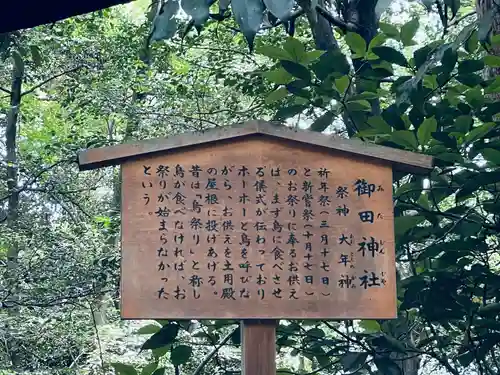 御田神社
みたじんじゃ
祭神 大年神
おおとしのかみ
祈年祭（三月十七日）
と新嘗祭（十一月十七日）
のお祭りに奉るお供え
は、まず烏に食べさせ
る儀式が伝わっており
ホーホーと烏を呼びな
がら、お供えを土用殿
の屋根に投げあげる。
昔は「烏祭り」と称し
烏が食べなければ、お
祭りが始まらなかった
という。